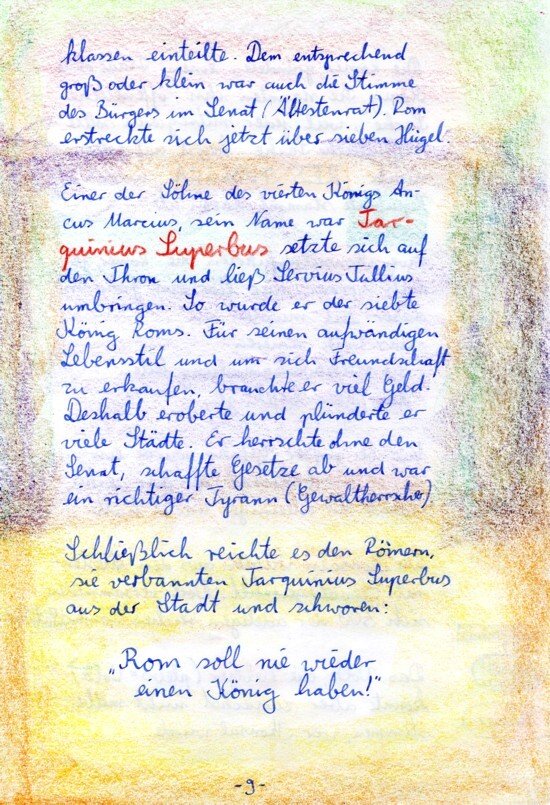 klassen einteilte. Dem entsprechend
groß oder klein war auch die Stimme
des Bürgers im Senat (Ältestenrat). Rom
erstreckte sich jetzt über sieben Hügel.
Einer der Söhne des vierten Königs An-
cus Marcius, sein Name war Tar-
quinius Superbus setzte sich auf
den Thron und ließ Servius Tullius
umbringen. So wurde er der siebte
König Roms. Für seinen aufwändigen
Lebensstil und um sich Freundschaft
zu erkaufen, brauchte er viel Geld.
Deshalb eroberte und plünderte er
viele Städte. Er herrschte ohne den
Senat, schaffte Gesetze ab und war
ein richtiger Tyrann (Gewaltherrscher)
Schließlich reichte es den Römern,
sie verbannten Tarquinius Superbus
aus der Stadt und schworen:
„Rom soll nie wieder
einen König haben!"
-9-